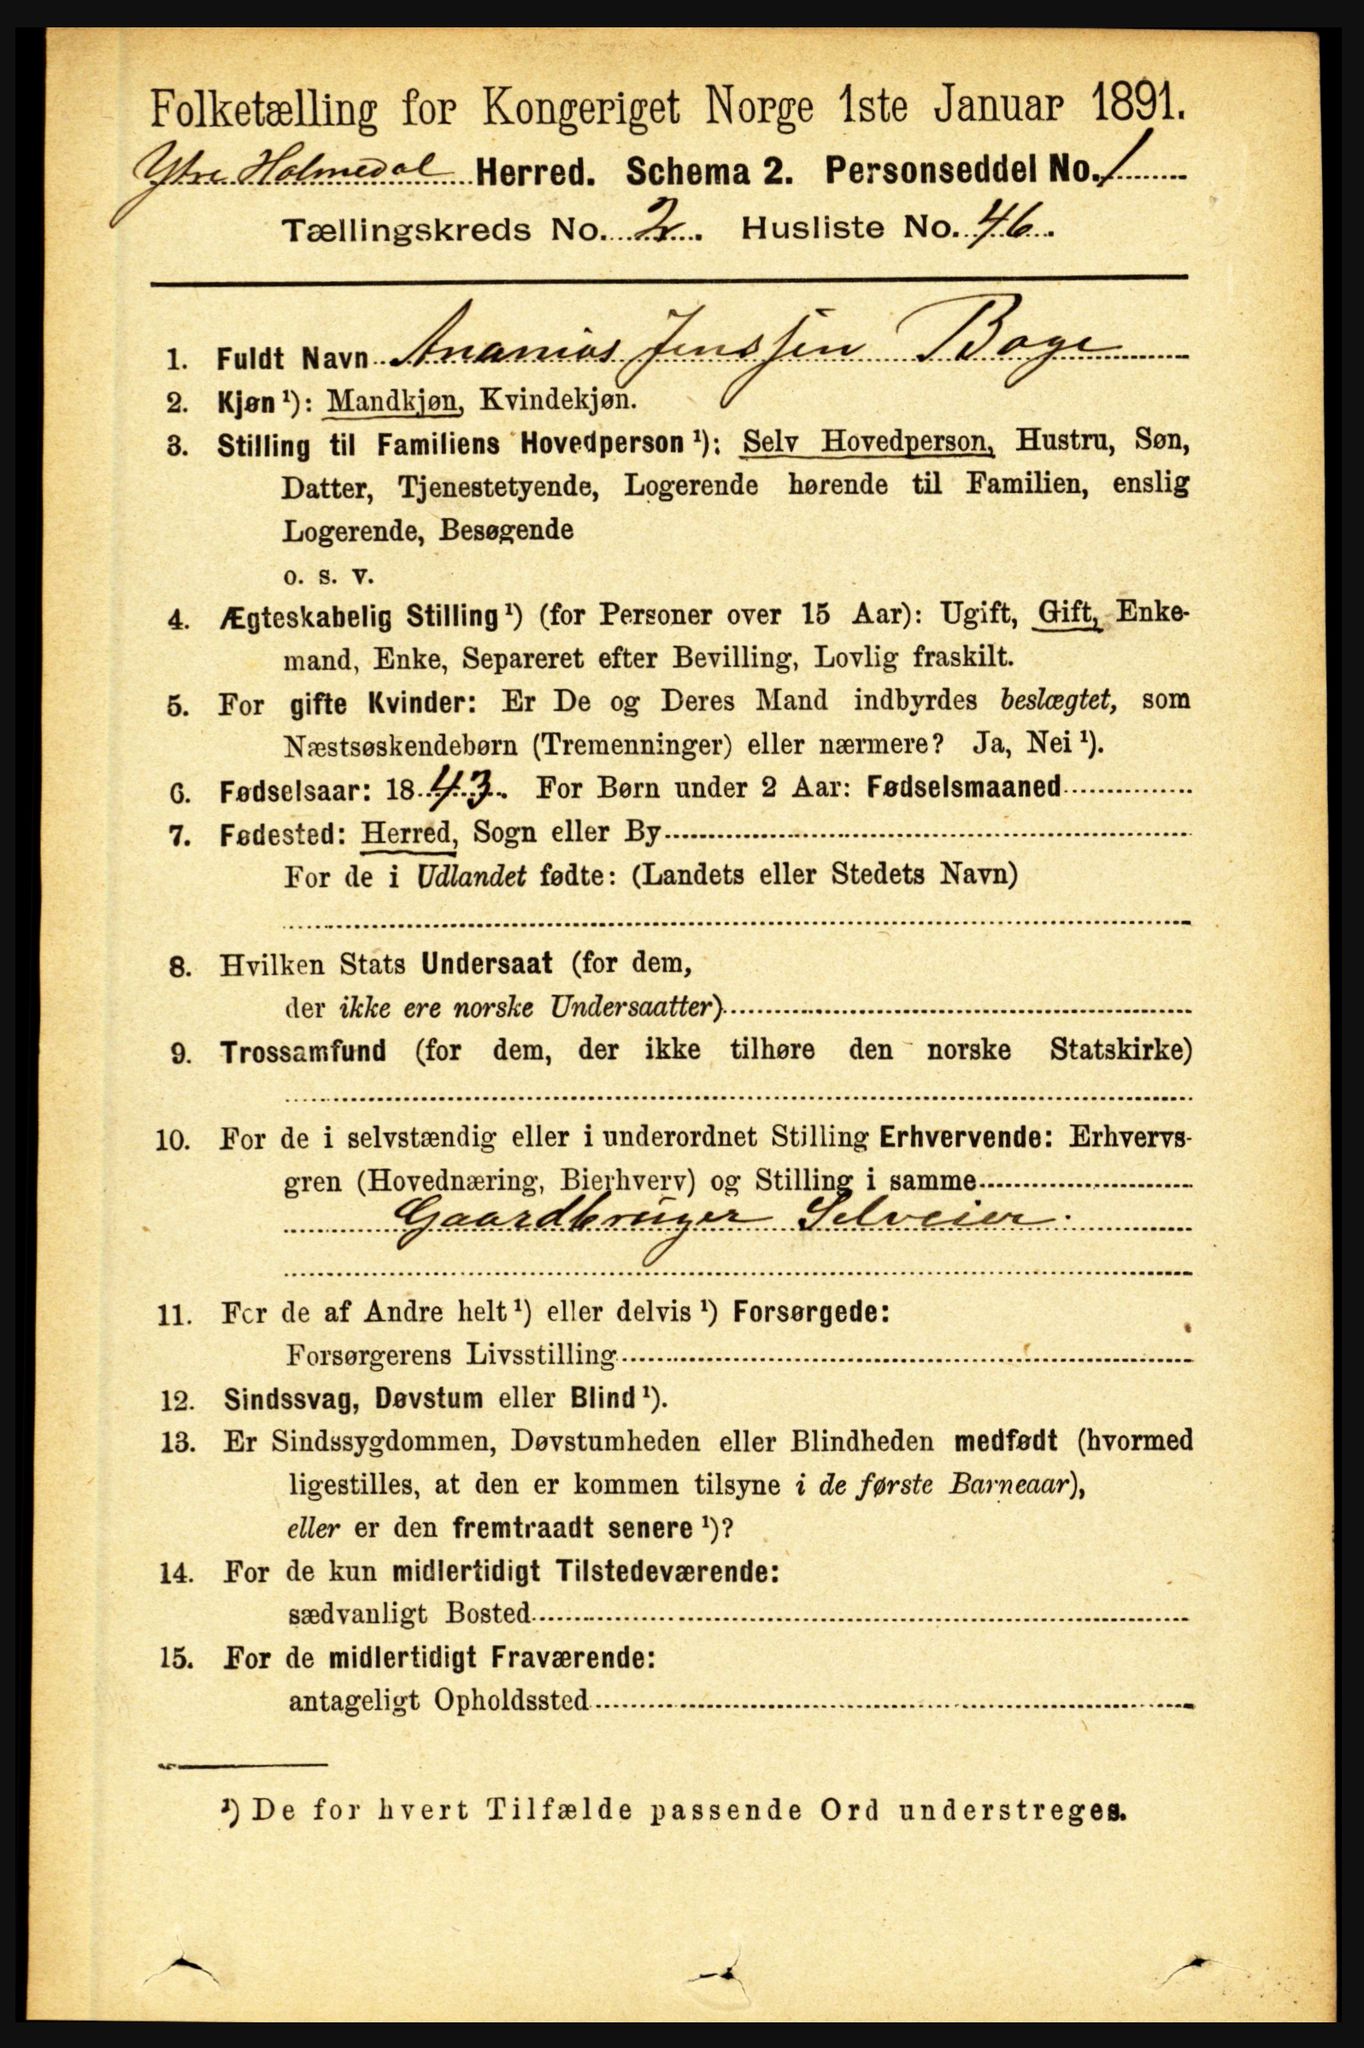 Folketælling for Kongeriget Norge 1ste Januar 1891.
Ytre Holmedal Herred. Schema 2. Personseddel No. 1
Tællingskreds No. 2. Husliste No. 46.
1. Fuldt Navn Ananias Jenssen Boge
2. Kjøn ¹): Mandkjøn, Kvindekjøn.
3. Stilling til Familiens Hovedperson ¹): Selv Hovedperson, Hustru, Søn,
Datter, Tjenestetyende, Logerende hørende til Familien, enslig
Logerende, Besøgende
o. s. v.
4. Ægteskabelig Stilling ¹) (for Personer over 15 Aar): Ugift, Gift, Enke-
mand, Enke, Separeret efter Bevilling, Lovlig fraskilt.
5. For gifte Kvinder: Er De og Deres Mand indbyrdes beslægtet, som
Næstsøskendebørn (Tremenninger) eller nærmere? Ja, Nei ¹).
6. Fødselsaar: 1843. For Børn under 2 Aar: Fødselsmaaned
7. Fødested: Herred, Sogn eller By
For de i Udlandet fødte: (Landets eller Stedets Navn)
8. Hvilken Stats Undersaat (for dem,
der ikke ere norske Undersaatter)
9. Trossamfund (for dem, der ikke tilhøre den norske Statskirke)
10. For de i selvstændig eller i underordnet Stilling Erhvervende: Erhvervs-
gren (Hovednæring, Bierhverv) og Stilling i samme
Gaardbruger Selveier.
11. For de af Andre helt ¹) eller delvis ¹) Forsørgede:
Forsørgerens Livsstilling
12. Sindssvag, Døvstum eller Blind ¹).
13. Er Sindssygdommen, Døvstumheden eller Blindheden medfødt (hvormed
ligestilles, at den er kommen tilsyne i de første Barneaar),
eller er den fremtraadt senere ¹)?
14. For de kun midlertidigt Tilstedeværende:
sædvanligt Bosted
15. For de midlertidigt Fraværende:
antageligt Opholdssted
¹) De for hvert Tilfælde passende Ord understreges.